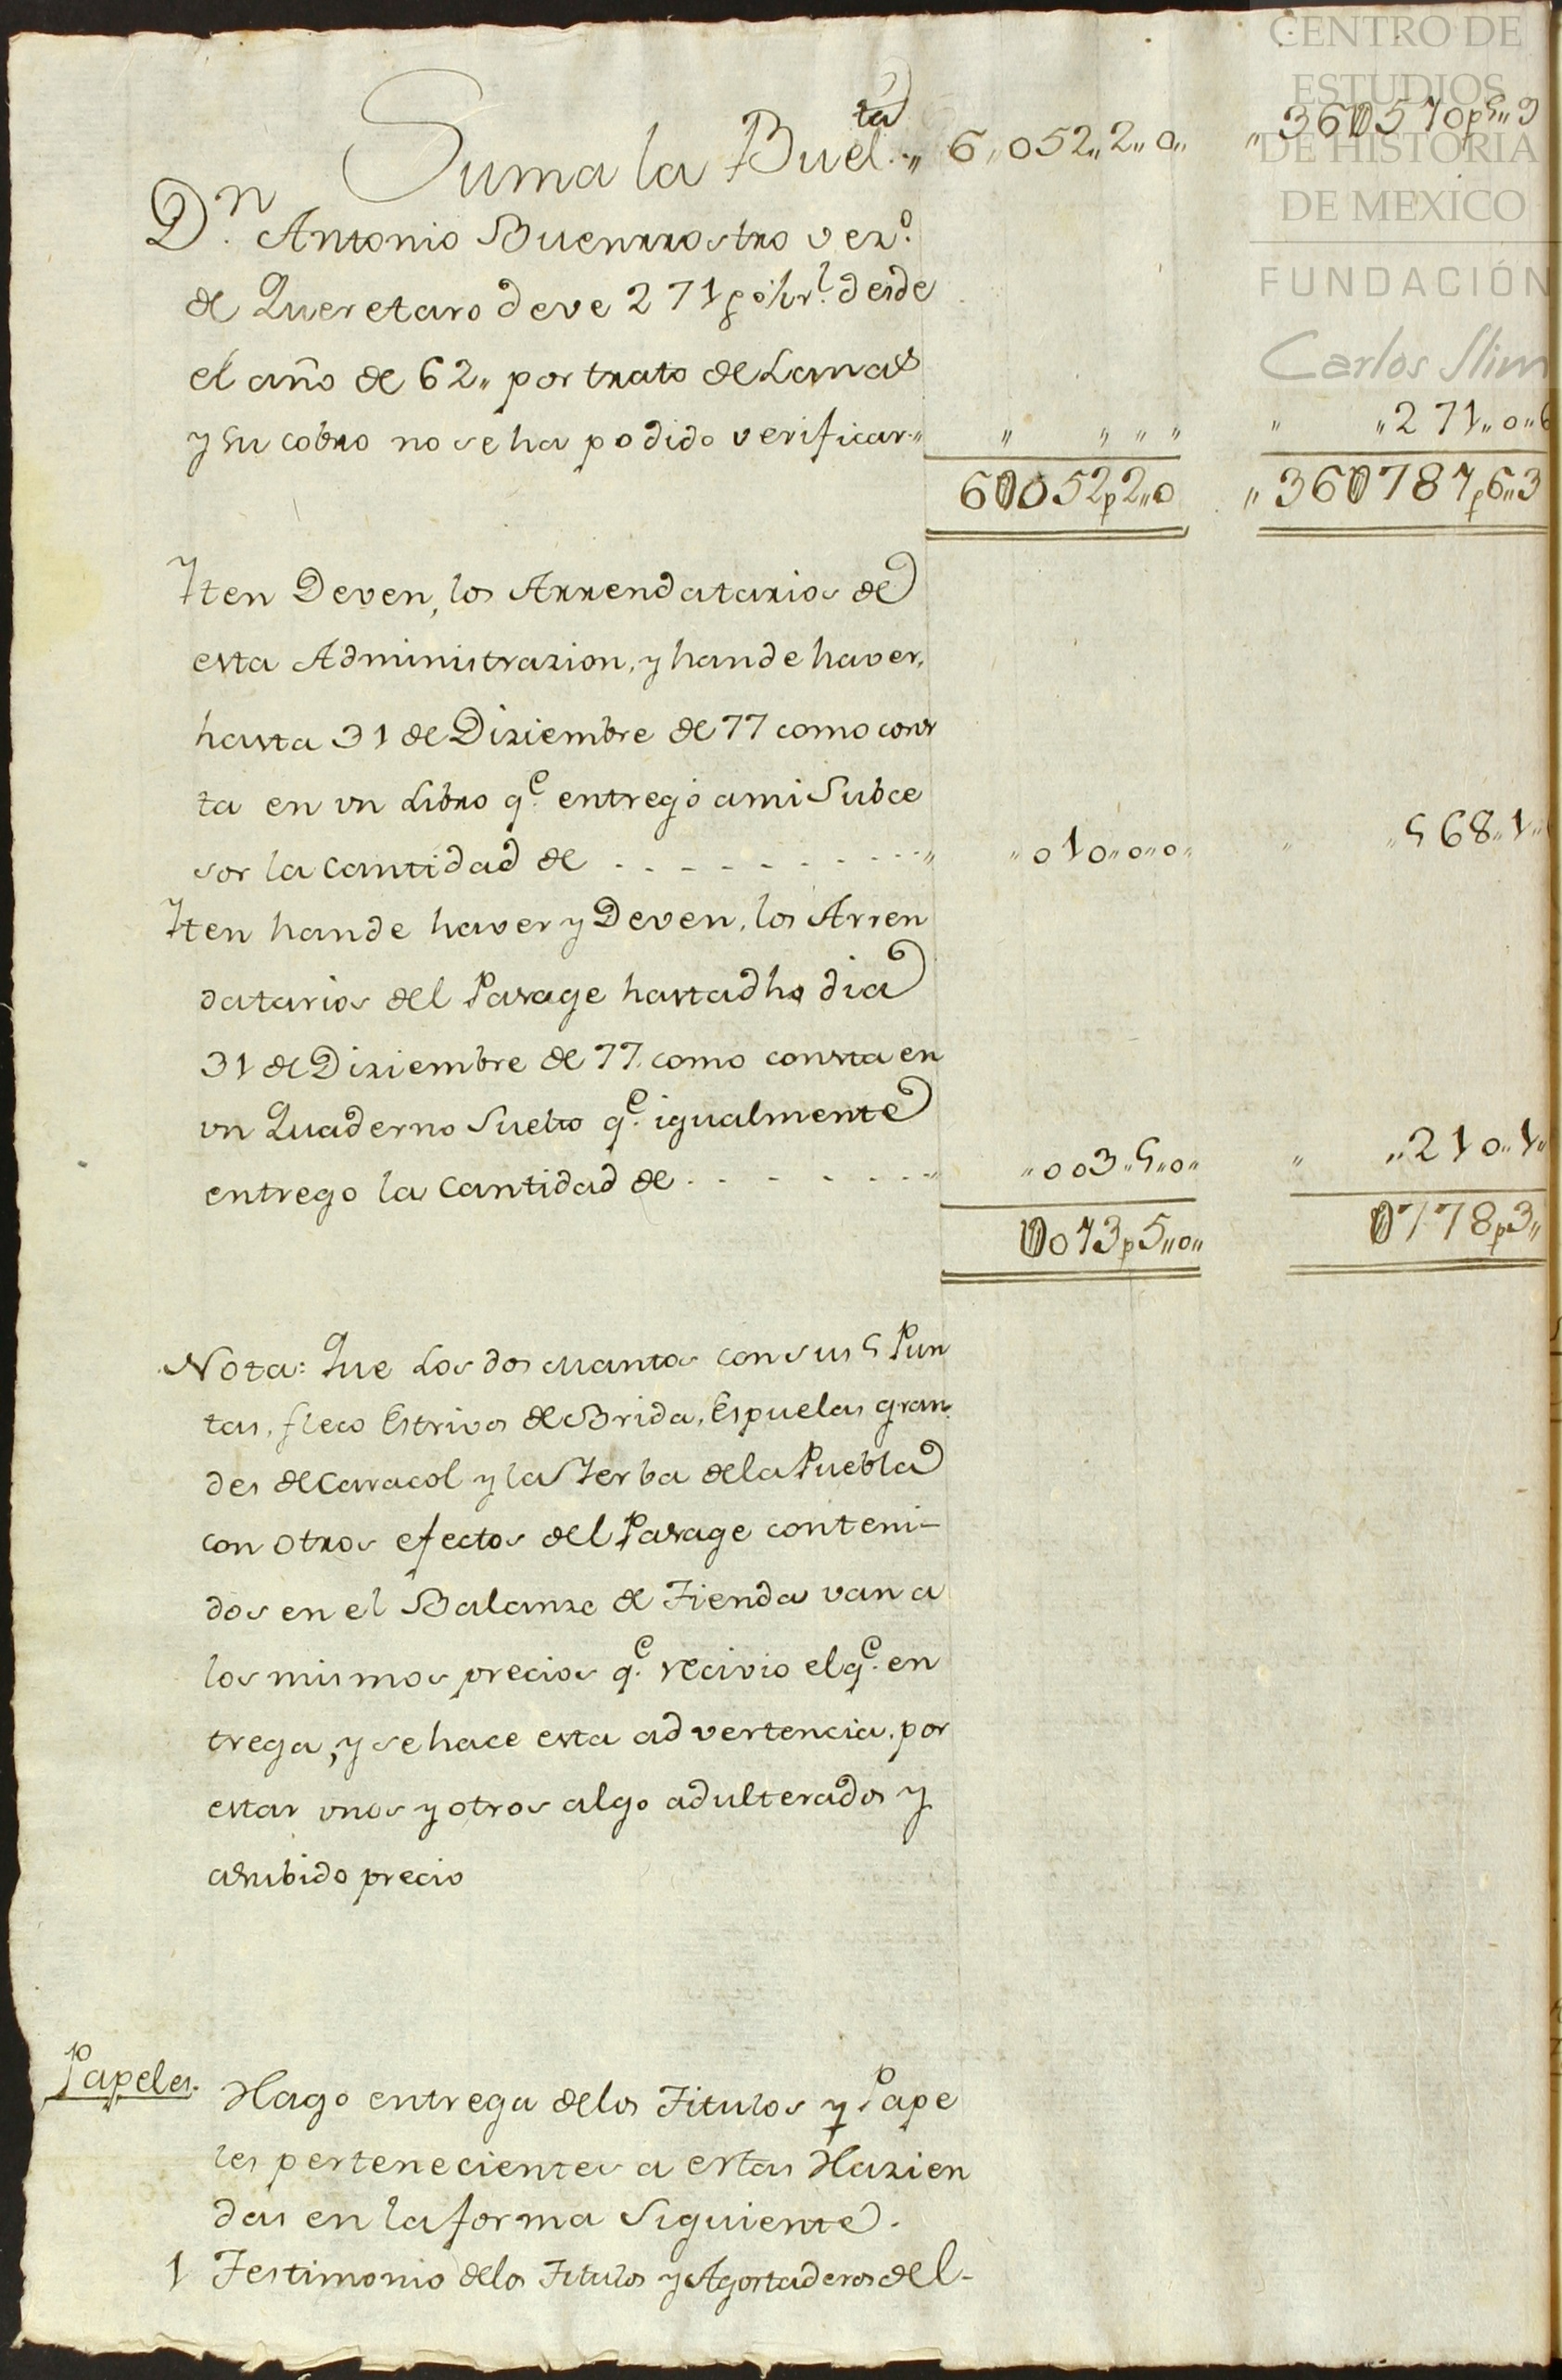 CENTRO DE
ESTUDIOS
DE HISTORIA
DE MEXICO
FUNDACIÓN
Carlos Slim
Suma la Buel.ta 6,,052,,2,,0,,
D.n Antonio Buenrrostro vez.o
de Queretaro deve 271 desde
el año de 62,, por trato de Lanas
y su cobro no se ha podido verificar,, ,, ,, ,, ,, ,, ,,271,,0,,6
60052p2,,0 ,,360787p6,,3
Yten Deven, los Arrendatarios de
esta Administrazion, y han de haver,
hasta 31 de Diziembre de 77 como cons
ta en un Libro q.e entregò a mi Subce
sor la cantidad de ,,010,,0,,0,, ,, ,,568,,1,,
Yten han de haver y Deven, los Arren
datarios del Parage hasta dho dia
31 de Diziembre de 77. como consta en
un Quaderno Suelto q.e igualmente
entrego la cantidad de ,,003,,5,,0,, ,, ,,210,,1,,
0013p5,,0,, 0778p3,,
Nota: Que Los dos mantos con sus 5 Pun
tas, fleco Estrivos de Brida, Espuelas gran
des de Caracol y la Yerba de la Puebla
con otros efectos del Parage conteni-
dos en el Balanze de Tienda van a
los mismos precios q.e recivio el q.e en
trega, y se hace esta advertencia. por
estar unos y otros algo adulterados y
a subido precio
Papeles. Hago entrega de los Titulos y Pape
les pertenecientes a estas Hazien
das en la forma Siguiente.
1 Testimonio de los Titulos y Agostaderos del-